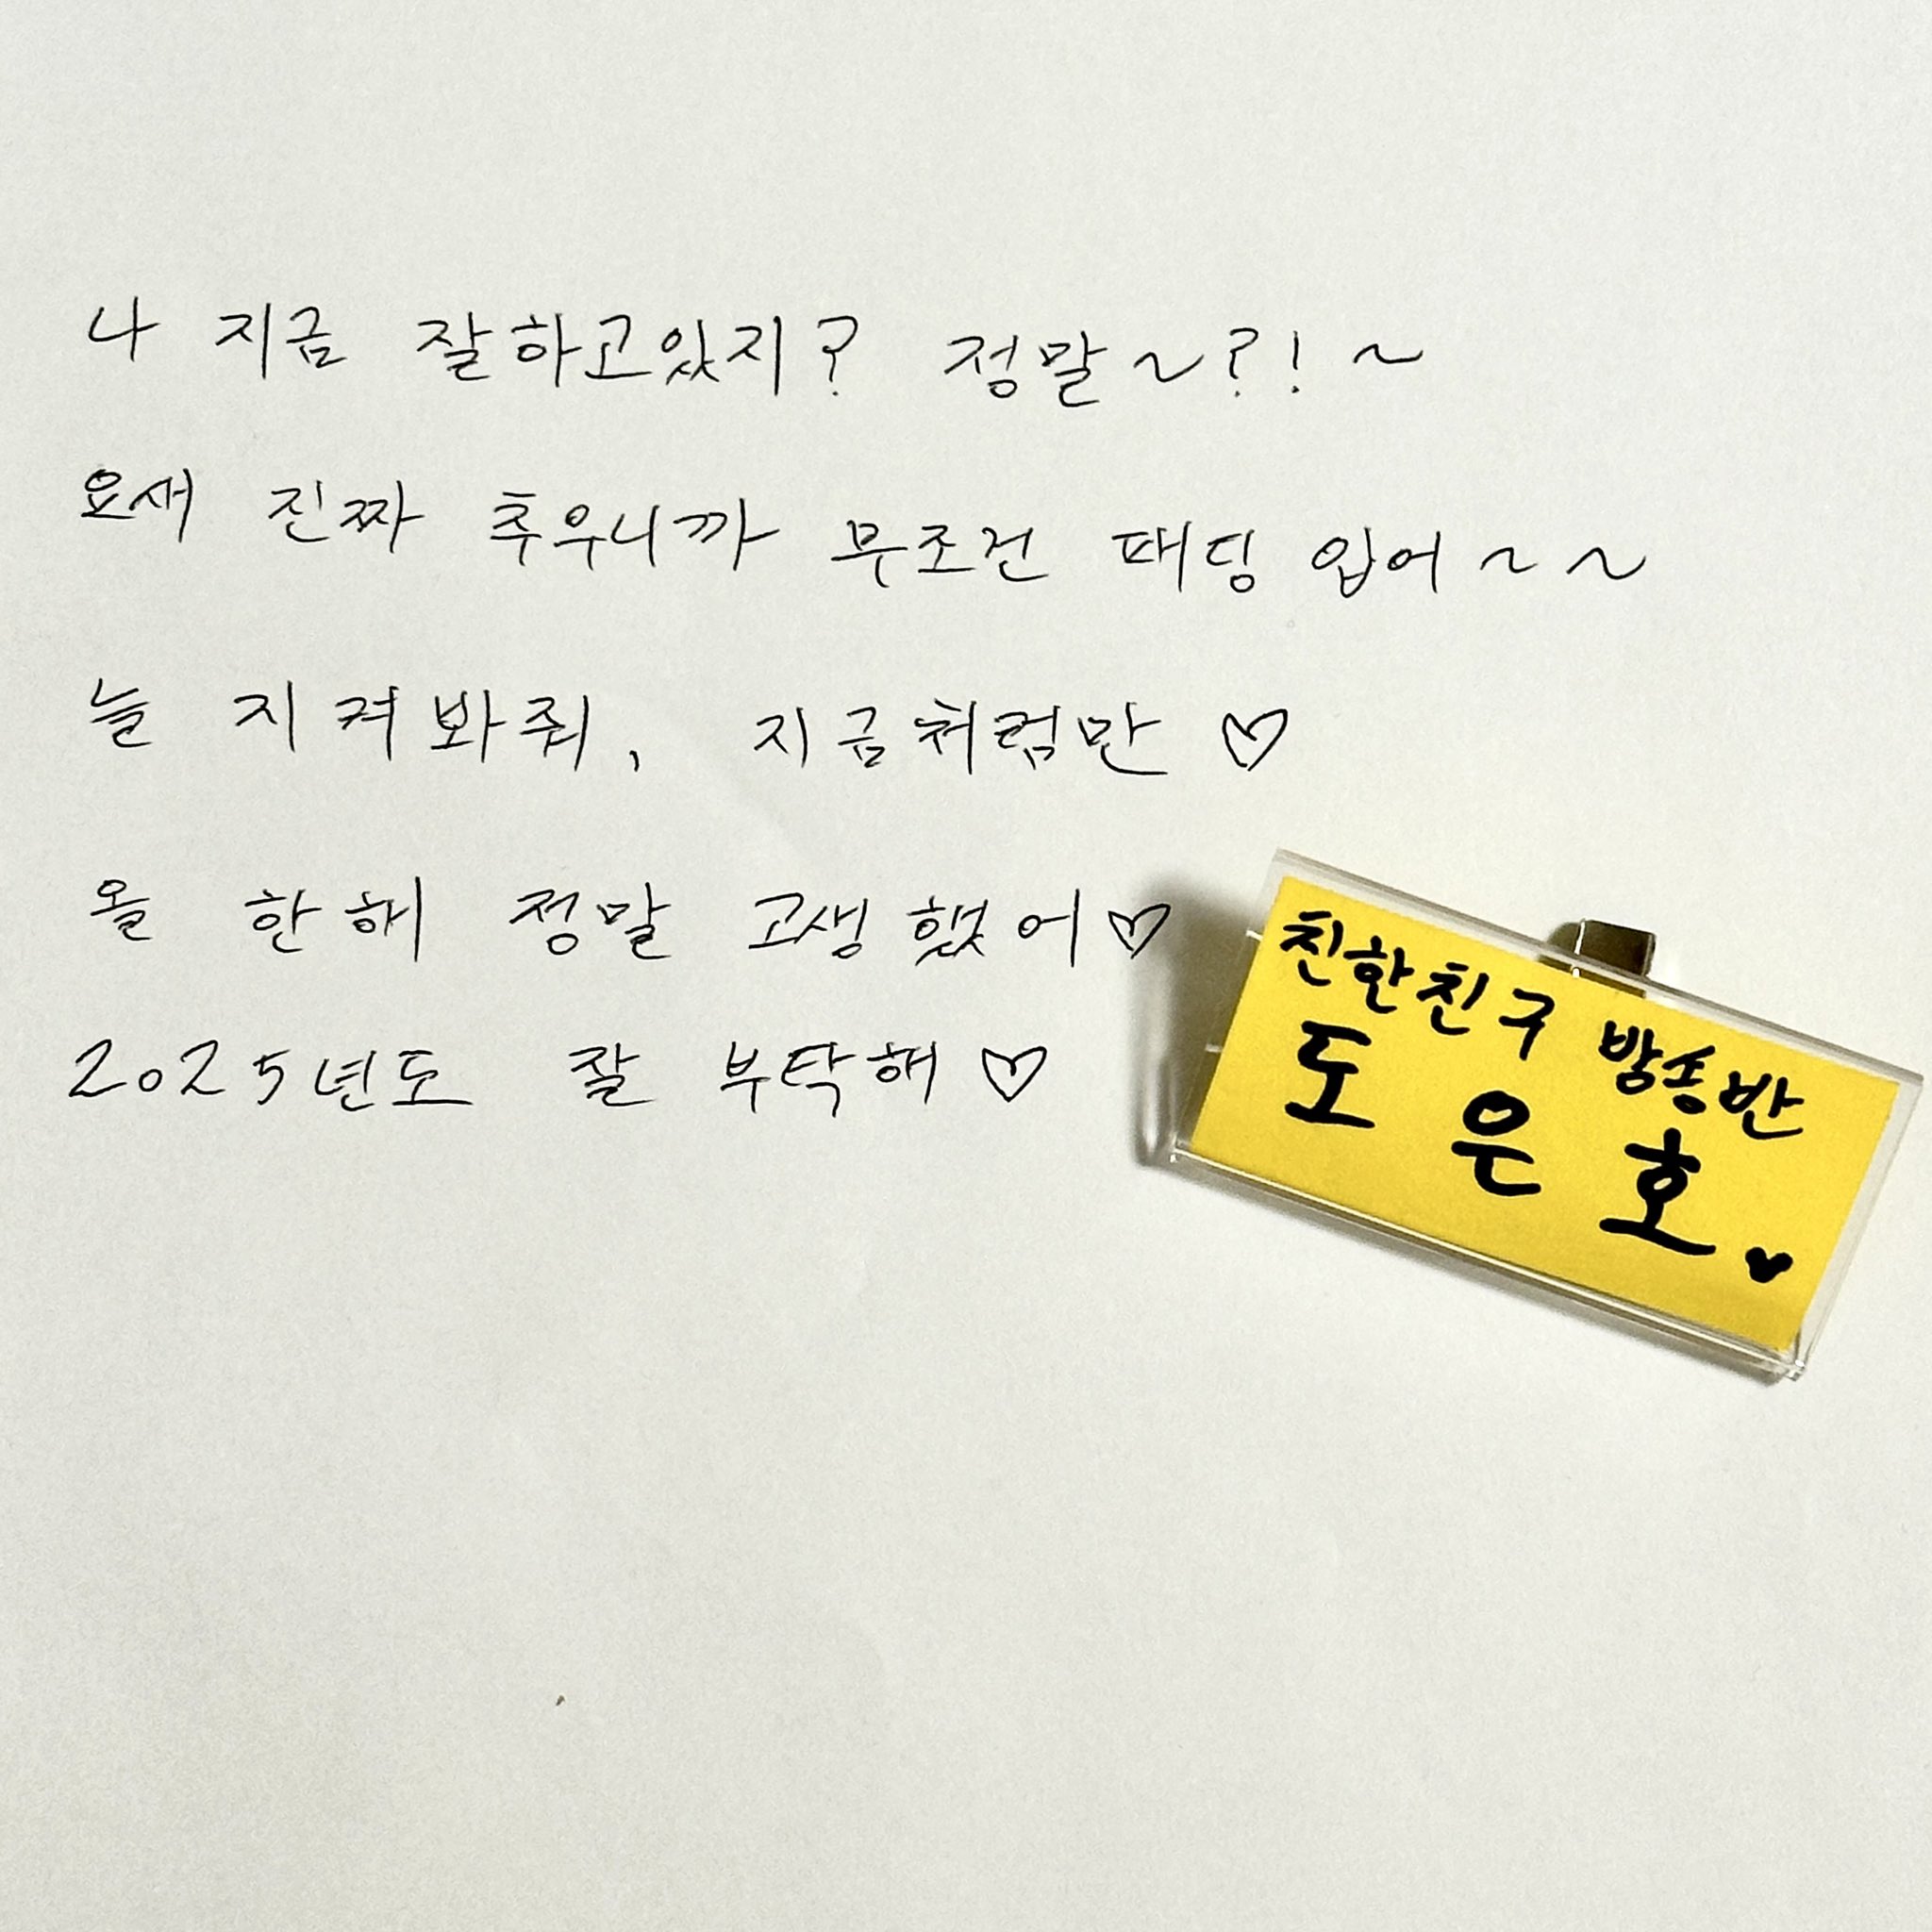 나 지금 잘하고있지? 정말~?! ~
요새 진짜 추우니까 무조건 패딩 입어~~
늘 지켜봐줘, 지금처럼만 ♡
올 한해 정말 고생했어♡
2025년도 잘 부탁해♡
친한친구 방송반
도은호♥